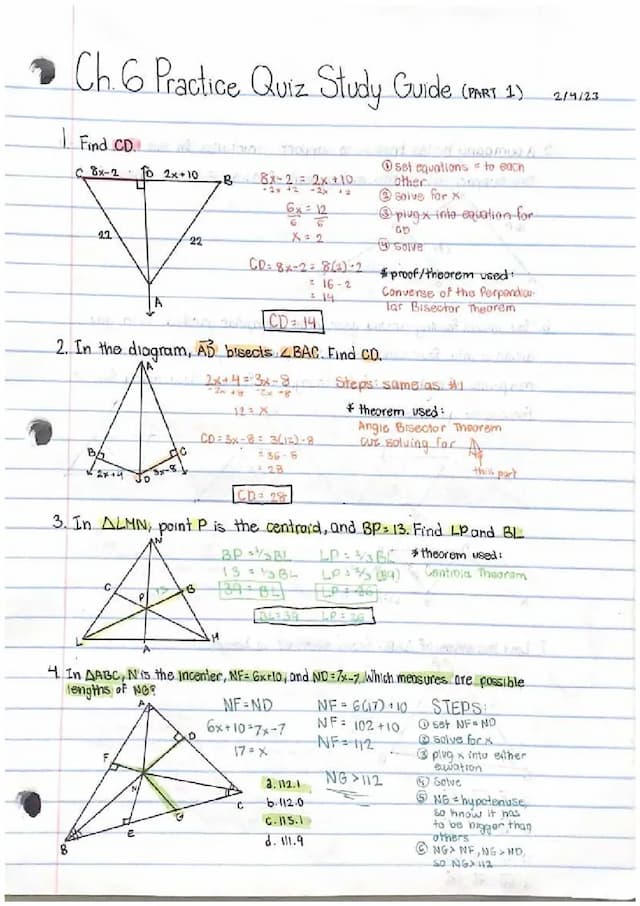 Ch. 6 Practice Quiz Study Guide (PART 1) 2/4/23
1. Find CD.
C 8x-2 D 2x+10 B
22 22
A
8x-2 = 2x+10
-2x +2 -2x +2
6x = 12
6 6
x = 2
CD = 8x-2 = 8(2)-2
= 16-2
= 14
CD = 14
① set equations = to each
other
② solve for x
③ plug x into equation for
CD
④ solve
* proof/theorem used:
Converse of the Perpendicu-
lar Bisector Theorem
2. In the diagram, AD bisects ∠BAC. Find CD.
A
B C
2x+4 D 3x-8
2x+4 = 3x-8
-2x +8 -2x +8
12 = x
CD = 3x-8 = 3(12)-8
= 36-8
= 28
CD = 28
Steps: same as #1
* theorem used:
Angle Bisector Theorem
cuz solving for
this part
3. In △LMN, point P is the centroid, and BP = 13. Find LP and BL
N
C P 13 B
L A M
BP = 1/3 BL
13 = 1/3 BL
39 = BL
LP = 2/3 BL
LP = 2/3 (39)
LP = 26
BL = 39 LP = 26
* theorem used:
Theorem
4. In △ABC, N is the incenter, NF = 6x+10, and ND = 7x-7. Which measures are possible
lengths of NG?
A
F D
N
C
G
E
B
NF = ND
6x+10 = 7x-7
17 = x
NF = 6(17)+10
NF = 102+10
NF = 112
NG > 112
a. 112.1
b. 112.0
c. 115.1
d. 111.9
STEPS:
① set NF = ND
② solve for x
③ plug x into either
equation
④ Solve
⑤ NG = hypotenuse,
so know it has
to be bigger than
others
⑥ NG > NF, NG > ND,
so NG > 112